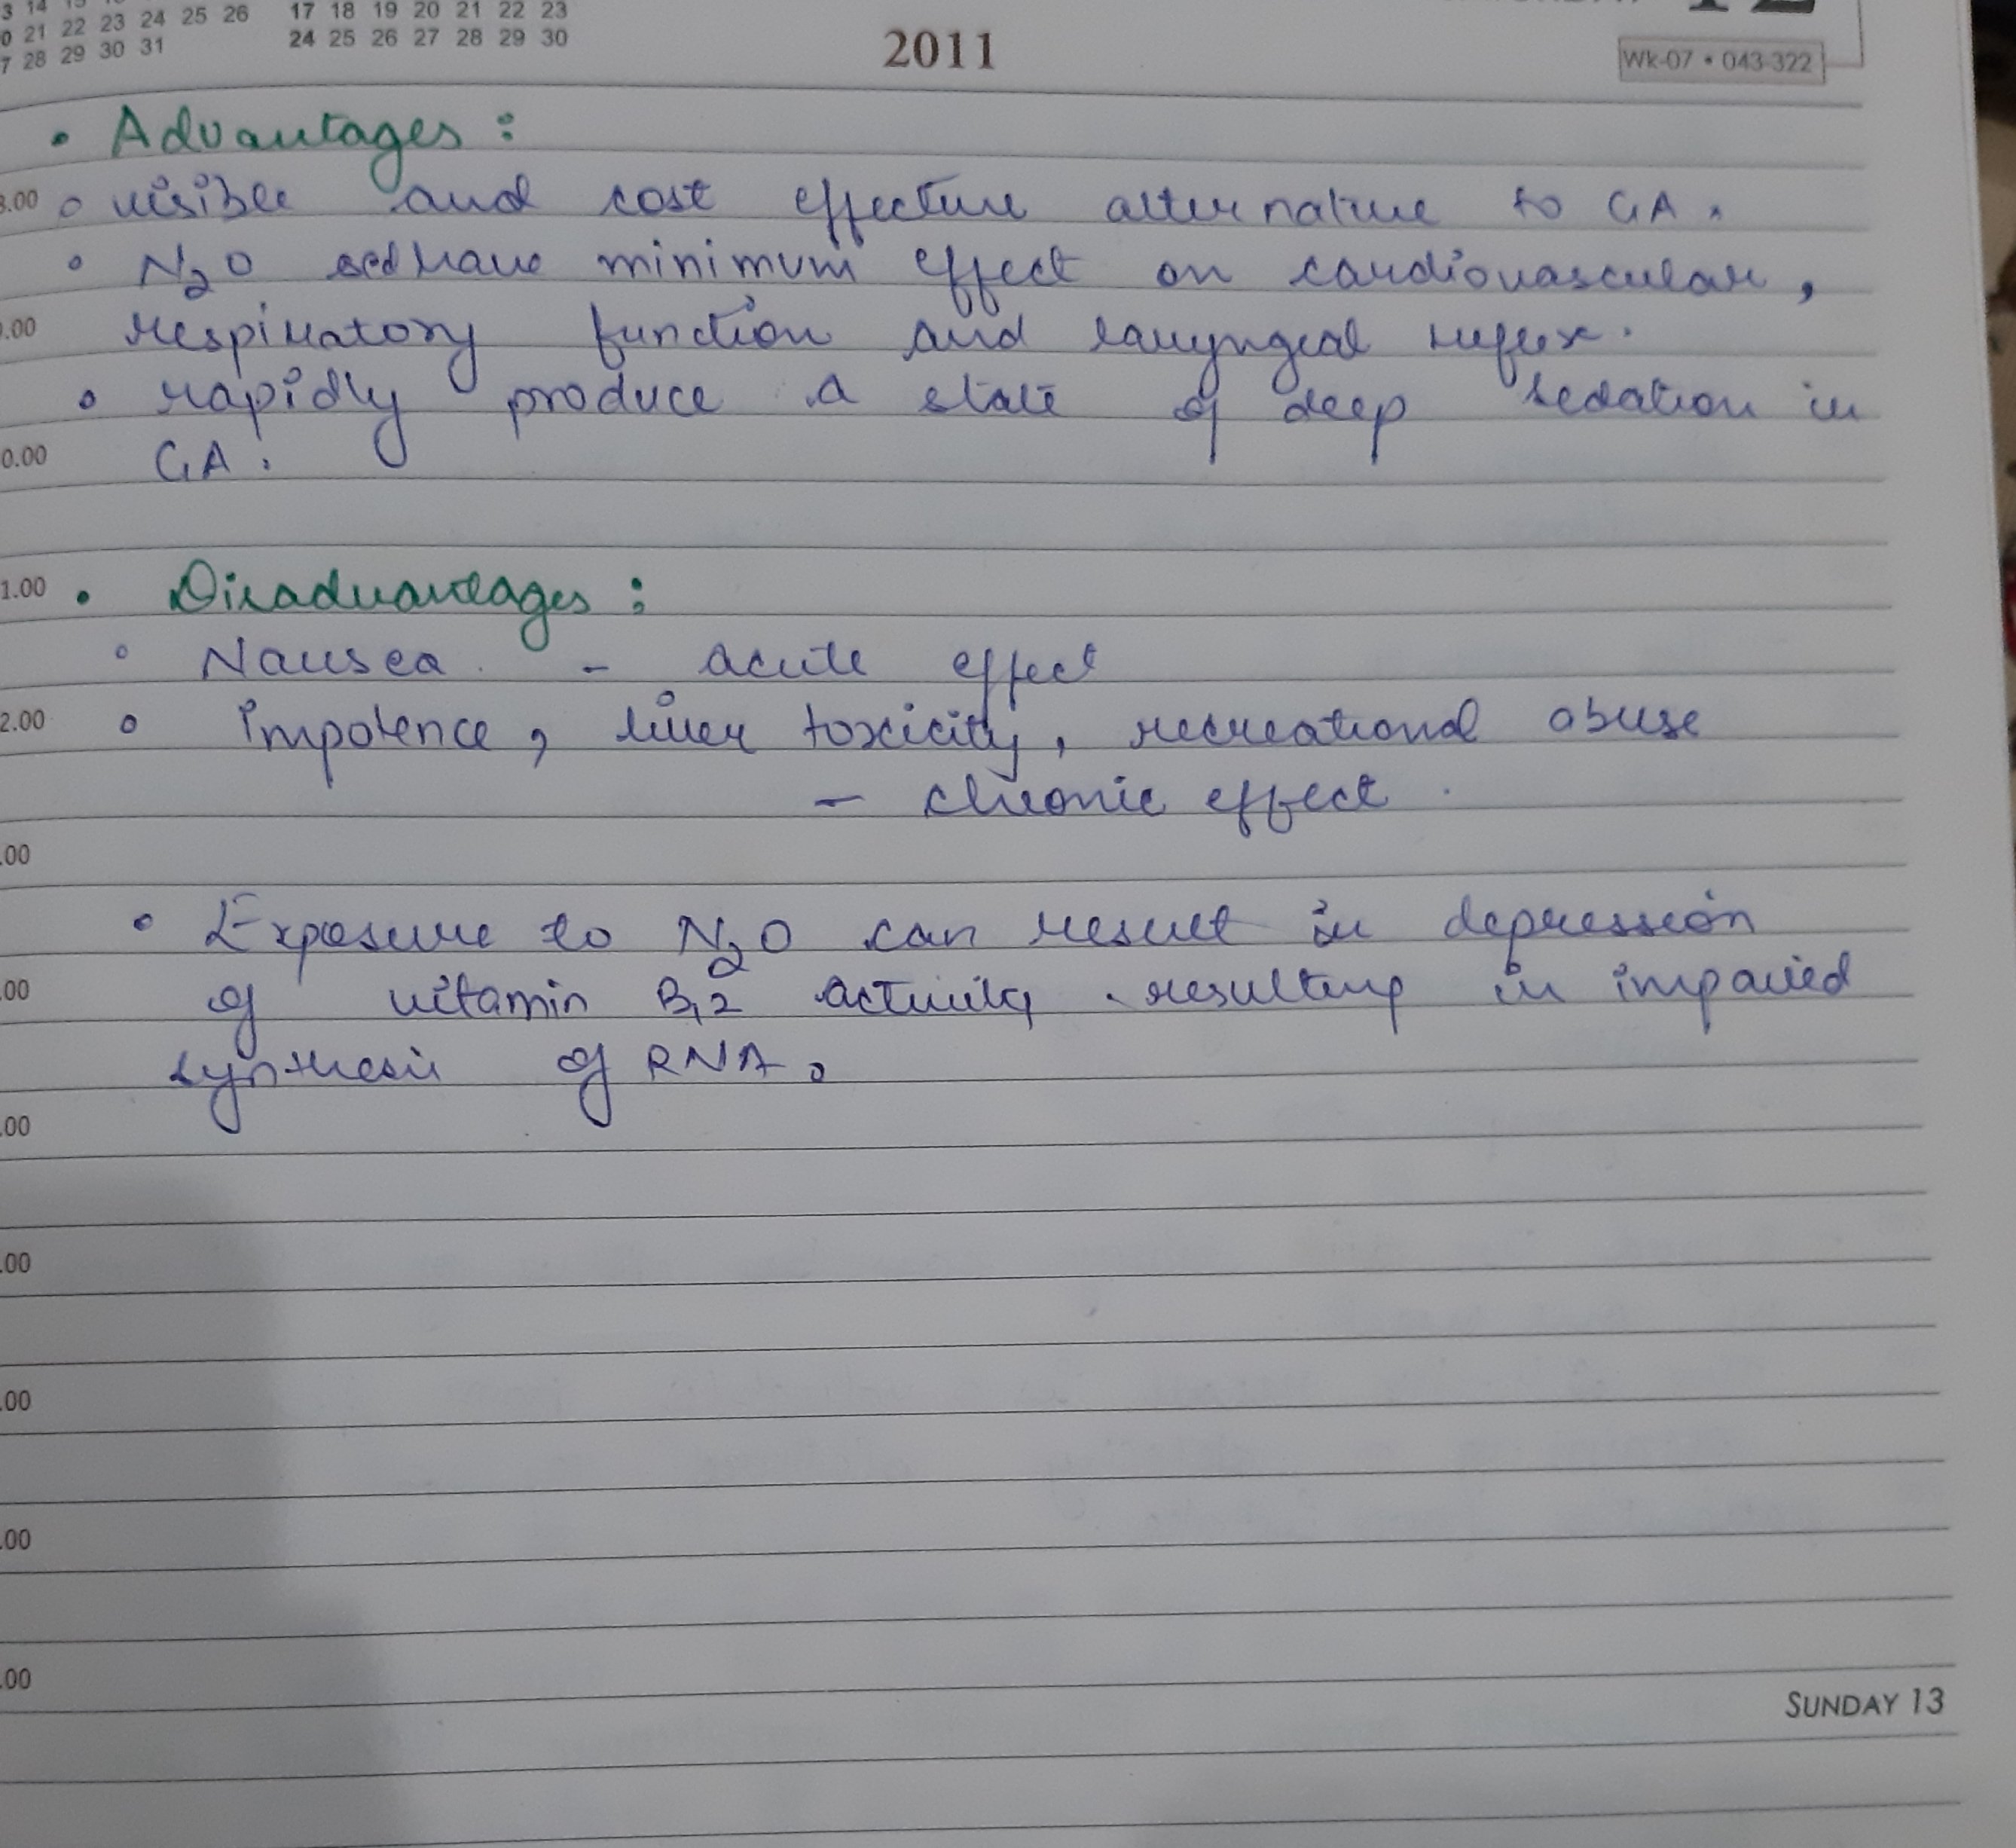 21 22 23 24 25 26 17 18 19 20 21 22 23
28 29 30 31 24 25 26 27 28 29 30
2011
Wk-07 • 043-322
• Advantages :
∘ visible and cost effective alternative to GA.
∘ N2O have minimum effect on cardiovascular,
respiratory function and laryngeal reflex.
∘ rapidly produce a state of deep sedation in
GA.
• Disadvantages :
∘ Nausea - acute effect
∘ Impotence, liver toxicity, recreational abuse
– chronic effect.
∘ Exposure to N2O can result in depression
of vitamin B12 activity resulting in impaired
synthesis of RNA.
SUNDAY 13